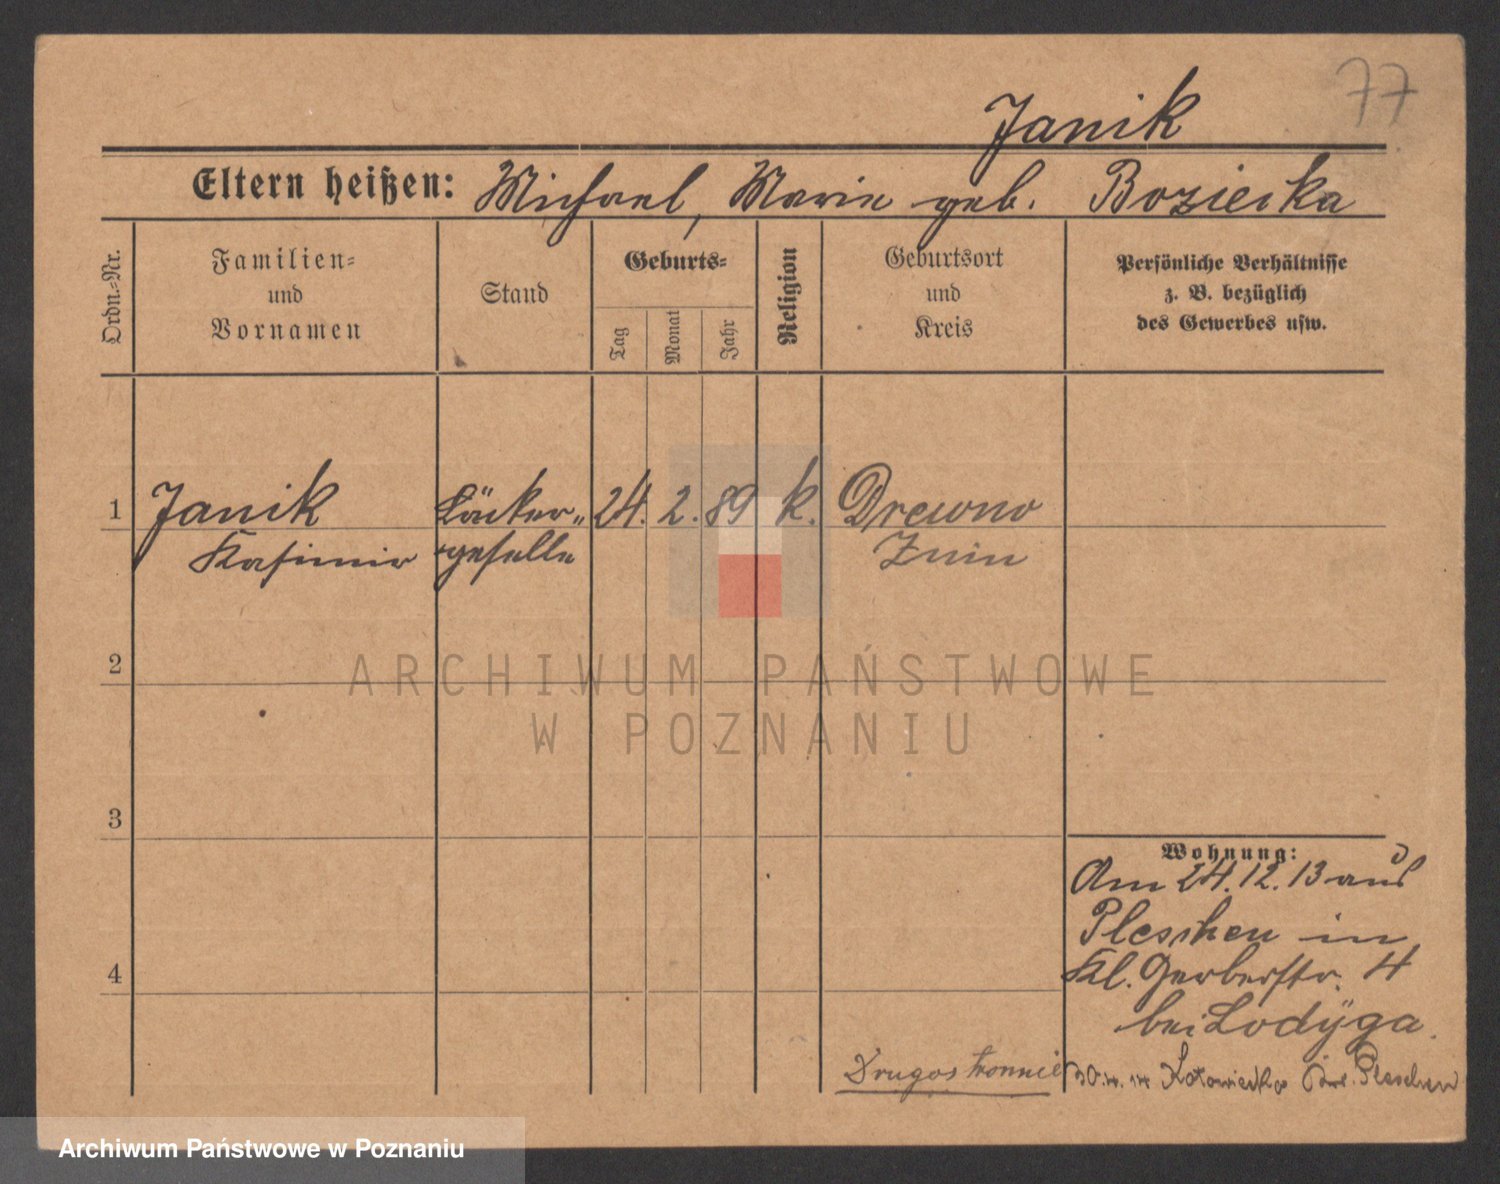 77
Janik
Eltern heißen: Michael, Marie geb. Boziecka
Ordn.=Nr.
Familien=
und
Vornamen
Stand
Geburts=
Tag
Monat
Jahr
Religion
Geburtsort
und
Kreis
Persönliche Verhältnisse
z. B. bezüglich
des Gewerbes usw.
1 Janik Bäcker= 24. 2. 89 k. Drewno
Kasimir geselle Znin
2
ARCHIWUM PAŃSTWOWE
W POZNANIU
3
Wohnung:
Am 24.12.13 aus
Pleschen in
4
Kl. Gerberstr. 4
bei Lodÿga.
Drugostronnie
30.4.14 Kotowiecko Pleschen
Archiwum Państwowe w Poznaniu